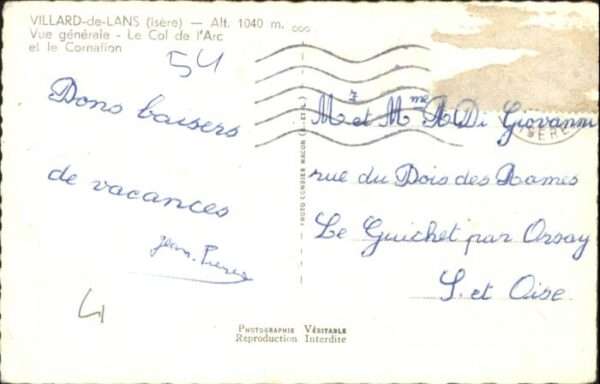 VILLARD-de-LANS (Isère) — Alt. 1040 m.
Vue générale - Le Col de l'Arc
et le Cornafion
54
Bons baisers
de vacances
Jean
4
PHOTO COMBIER MACON (S.-ET-L.)
Mr et Mme A Di Giovanni
rue du Bois des Rames
Le Guichet par Orsay
S. et Oise
ISERE
PHOTOGRAPHIE VÉRITABLE
Reproduction Interdite